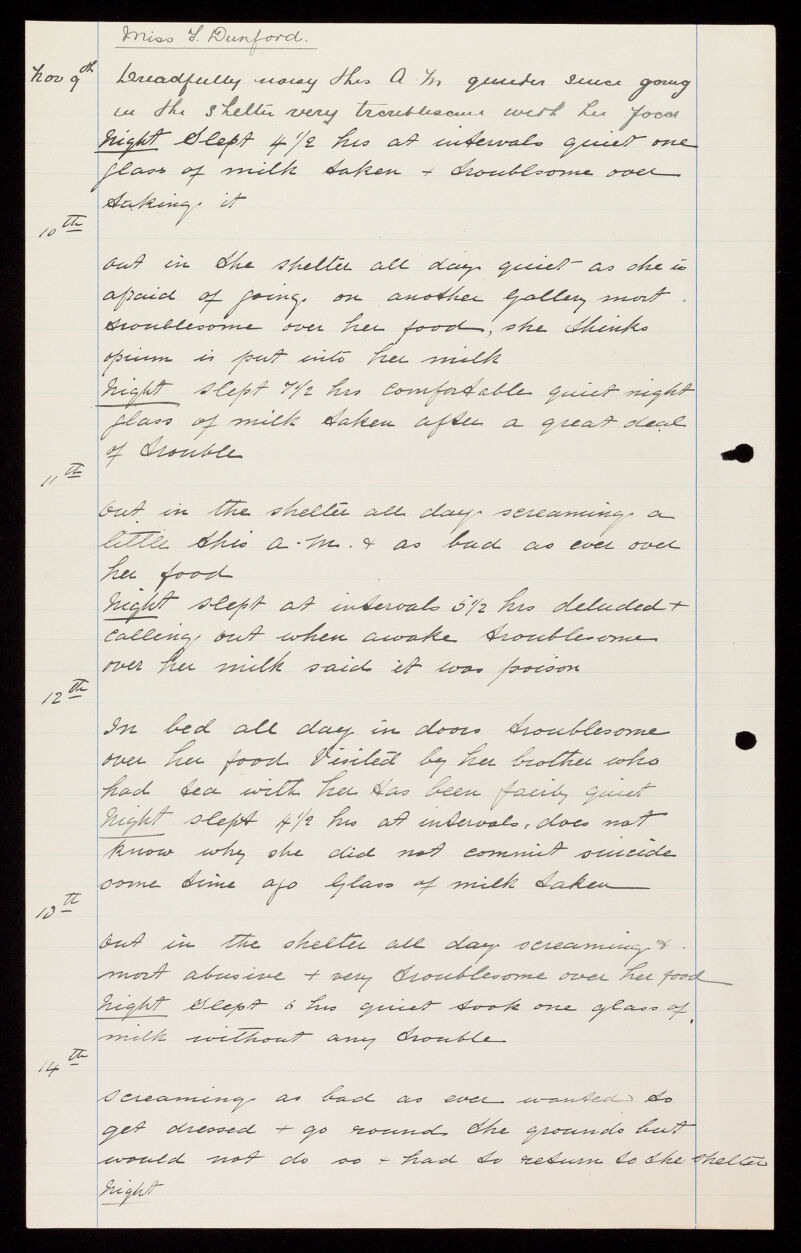 Miss F. Dunford.
Nov 9th Dreadfully noisy this A.M quieter since going
in the shelter very troublesome with her food
Night Slept 4 1/2 hrs at intervals quiet one
glass of milk taken + troublsome over
taking it
10th
out in the shelter all day quiet as she is
afraid of going on another Gallery most
troublesome over her food, she thinks
opium is put into her milk
Night slept 7 1/2 hrs comfortable quiet night
glass of milk taken after a great deal
of trouble
11th
out in the shelter all day screaming a
little this a.m. & as bad as ever over
her food
Night slept at intervals 5 1/2 hrs deluded +
calling out when awake troublesome
over her milk said it was poison
12th
In bed all day in doors troublesome
over her food Visited by her brother who
had tea with her Has been fairly quiet
Night slept 4 1/2 hrs at intervals, does not
know why she did not commit suicide
some time ago Glass of milk taken
13th
out in the shelter all day screaming &
most abusive + very troublesome over her food
Night Slept 6 hrs quiet took one glass of
milk without any trouble
14th
screaming as bad as ever wanted to
get dressed + go round the grounds but
would not do so + had to return to the shelter
Night